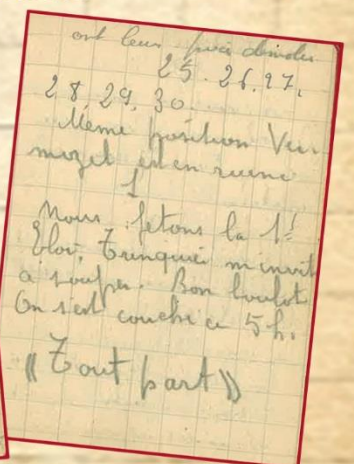 ont leur
25. 26. 27.
28. 29. 30.
Même position Ver-
mezel est en ruine
1
Nous fetons la St
Eloi, Trinquié m'invit
a souper. Bon boulot
On s'est couche a 5 h.
« Tout part »